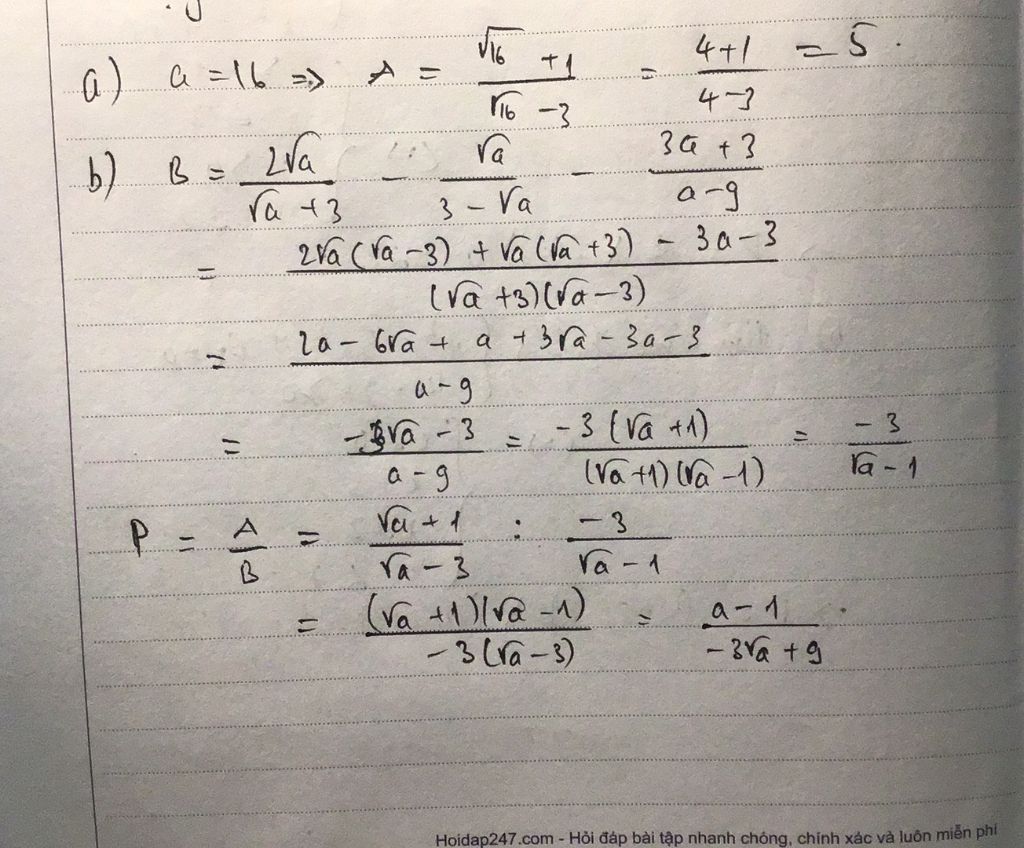 a) a = 16 => A = (√16 + 1)/(√16 - 3) = (4+1)/(4-3) = 5.
b) B = 2√a/(√a + 3) - √a/(3 - √a) - (3a + 3)/(a - 9)
= (2√a(√a - 3) + √a(√a + 3) - 3a - 3)/((√a + 3)(√a - 3))
= (2a - 6√a + a + 3√a - 3a - 3)/(a - 9)
= (-3√a - 3)/(a - 9) = -3(√a + 1)/((√a+1)(√a - 1)) = -3/(√a - 1)
P = A/B = (√a + 1)/(√a - 3) : -3/(√a - 1)
= (√a + 1)(√a - 1)/(-3(√a - 3)) = (a - 1)/(-3√a + 9).
Hoidap247.com - Hỏi đáp bài tập nhanh chóng, chính xác và luôn miễn phí